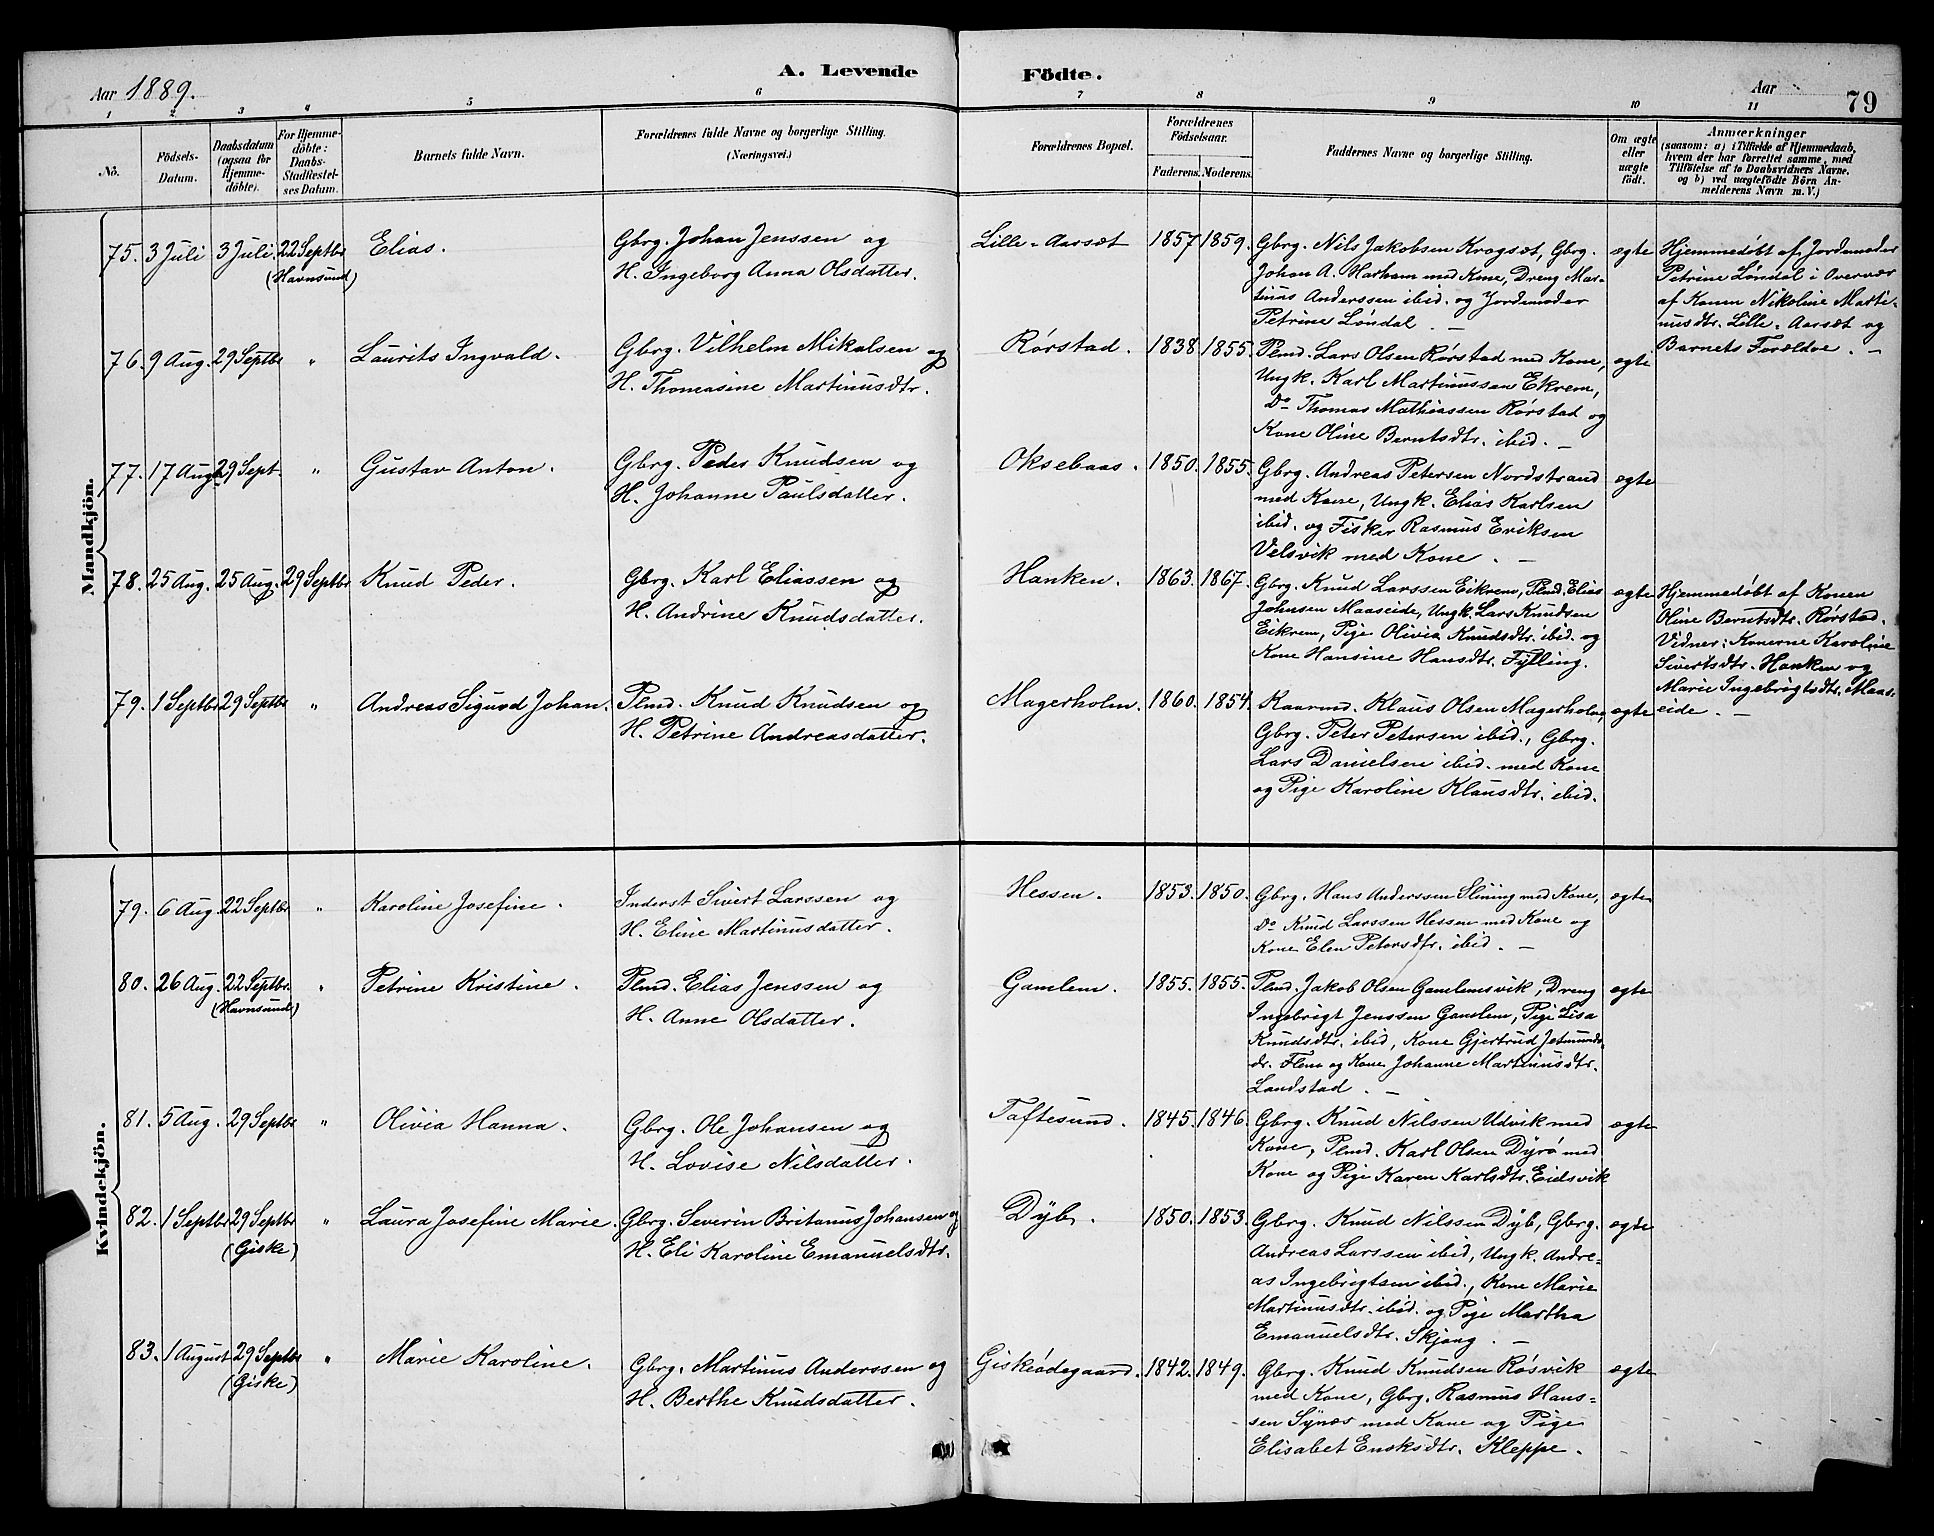 Aar 1889.
A. Levende Födte.
Aar
79
1 2 3 4 5 6 7 8 9 10 11
No.
Födsels-Datum.
Daabsdatum (ogsaa for Hjemmedöbte).
For Hjemmedöbte: Daabs-Stadfæstelses Datum.
Barnets fulde Navn.
Forældrenes fulde Navne og borgerlige Stilling. (Næringsvei.)
Forældrenes Bopæl.
Forældrenes Födselsaar.
Faderens. Moderens.
Faddernes Navne og borgerlige Stilling.
Om ægte eller uægte födt.
Anmærkninger
(saasom: a) i Tilfælde af Hjemmedaab, hvem der har forrettet samme, med Tilföielse af to Daabsvidners Navne, og b) ved uægtefödte Börn Anmelderens Navn m. V.)
Mandkjön.
75. 3 Juli 3 Juli 22 Septbr (Havnsund) Elias.
Gbrg. Johan Jenssen og
H. Ingeborg Anna Olsdatter.
Lille-Aarsæt 1857 1859.
Gbrg. Nils Jakobsen Krogsæt, Gbrg.
Johan A. Harham med Kone, Dreng Mar-
tinus Anderssen ibid. og Jordemoder
Petrine Løndal. —
ægte
Hjemmedøbt af Jordemoder
Petrine Løndal i Overvær
af Konen Nikoline Marti-
nusdtr. Lille-Aarsæt og
Barnets Forældre. —
76. 9 Aug. 29 Septbr " Laurits Ingvald.
Gbrg. Vilhelm Mikalsen og
H. Thomasine Martinusdtr.
Rørstad. 1838 1855.
Plmd. Lars Olsen Rørstad med Kone,
Ungk. Karl Martinussen Ekrem,
Do Thomas Mathiassen Rørstad og
Kone Oline Berntsdtr. ibid. —
ægte
77. 17 Aug. 29 Sept. " Gustav Anton.
Gbrg. Peder Knudsen og
H. Johanne Paulsdatter.
Oksebaas. 1850. 1855.
Gbrg. Andreas Petersen Nordstrand
med Kone, Ungk. Elias Karlsen
ibid. og Fisker Rasmus Eriksen
Velsvik med Kone. —
ægte
78. 25 Aug. 25 Aug. 29 Septbr Knud Peder.
Gbrg. Karl Eliassen og
H. Andrine Knudsdatter.
Hanken. 1863. 1867.
Gbrg. Knud Larssen Eikrem, Plmd. Elias
Johnsen Maaseide, Ungk. Lars Knudsen
Eikrem, Pige Olivia Knudsdtr. ibid. og
Kone Hansine Hansdtr. Fylling.
ægte
Hjemmedøbt af Konen
Oline Berntsdtr. Rørstad.
Vidner: Konerne Karoline
Sivertsdtr. Hanken og
Marie Ingebrigtsdtr. Maas-
eide. —
79. 1 Septbr 29 Septbr " Andreas Sigurd Johan.
Plmd. Knud Knudsen og
H. Petrine Andreasdatter.
Magerholm. 1860. 1854.
Kaarmd. Klaus Olsen Magerholm,
Gbrg. Peter Petersen ibid., Gbrg.
Lars Danielsen ibid. med Kone
og Pige Karoline Klausdtr. ibid.
ægte
Kvindekjön.
79. 6 Aug. 22 Septbr " Karoline Josefine.
Inderst Sivert Larssen og
H. Eline Martinusdatter.
Hessen. 1853. 1850.
Gbrg. Hans Anderssen Slining med Kone,
Do Knud Larssen Hessen med Kone og
Kone Elen Petersdtr. ibid. —
ægte
80. 26 Aug. 22 Septbr. (Havnsund) " Petrine Kristine.
Plmd. Elias Jenssen og
H. Anne Olsdatter.
Gamlem. 1855. 1855.
Plmd. Jakob Olsen Gamlemsvik, Dreng
Ingebrigt Jenssen Gamlem, Pige Lisa
Knudsdtr. ibid, Kone Gjertrud Jetmunds-
dr. Flem og Kone Johanne Martinusdtr.
Landstad. —
ægte
81. 5 Aug. 29 Septbr " Olivia Hanna.
Gbrg. Ole Johansen og
H. Lovise Nilsdatter.
Taftesund. 1845. 1846.
Gbrg. Knud Nilssen Udvik med
Kone, Plmd. Karl Olsen Dyrø med
Kone og Pige Karen Karlsdtr. Eidsvik
ægte
82. 1 Septbr 29 Septbr (Giske) " Laura Josefine Marie.
Gbrg. Severin Britanus Johansen og
H. Eli Karoline Emanuelsdtr.
Dyb. 1850. 1853.
Gbrg. Knud Nilssen Dyb, Gbrg.
Andreas Larssen ibid, Ungk. Andre-
as Ingebrigtsen ibid., Kone Marie
Martinusdtr. ibid. og Pige Martha
Emanuelsdtr. Skjong. —
ægte
83. 1 August 29 Septbr (Giske) " Marie Karoline.
Gbrg. Martinus Anderssen og
H. Berthe Knudsdatter.
Giskeødegaard. 1842. 1849.
Gbrg. Knud Knudsen Røsvik
med Kone, Gbrg. Rasmus Hans-
sen Synæs med Kone og Pige
Elisabet Enoksdtr. Kleppe.
ægte